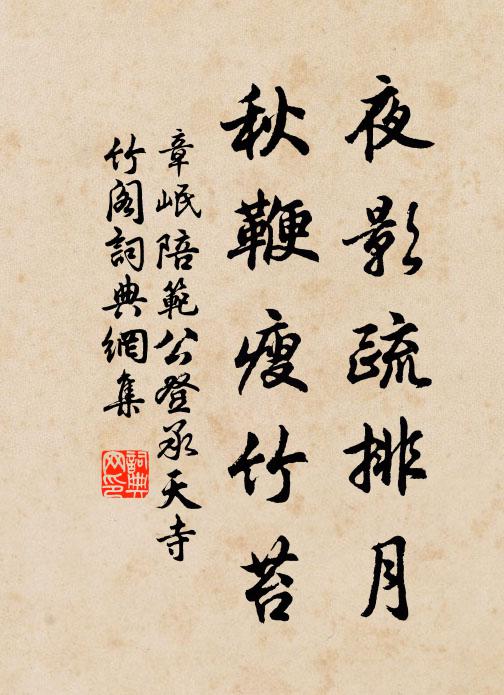 夜影疏排月
秋鞭瘦竹苔
章岷陪範公登承天寺
竹閣詞典網集
詞典网印